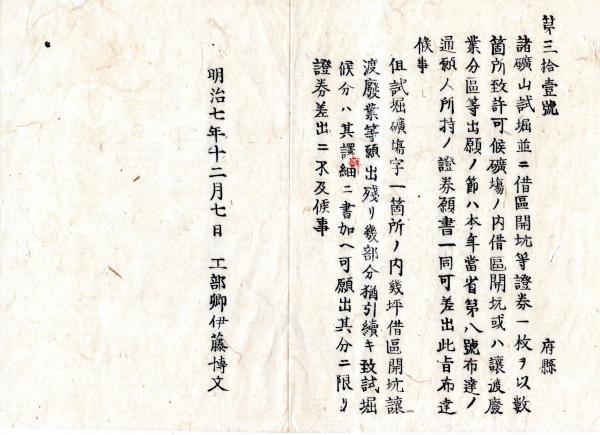 第三拾壹號
府縣
諸礦山試堀並ニ借區開坑等證券一枚ヲ以數
箇所致許可候礦塲ノ内借區開坑或ハ讓渡廢
業分區等出願ノ節ハ本年當省第八號布達ノ
通願人所持ノ證券願書一同可差出此旨布達
候事
但試堀礦塲字一箇所ノ内幾坪借區開坑讓
渡廢業等願出殘リ幾部分猶引續キ致試堀
候分ハ其譯細ニ書加ヘ可願出其分ニ限リ
證券差出ニ不及候事
明治七年十二月七日　工部卿伊藤博文